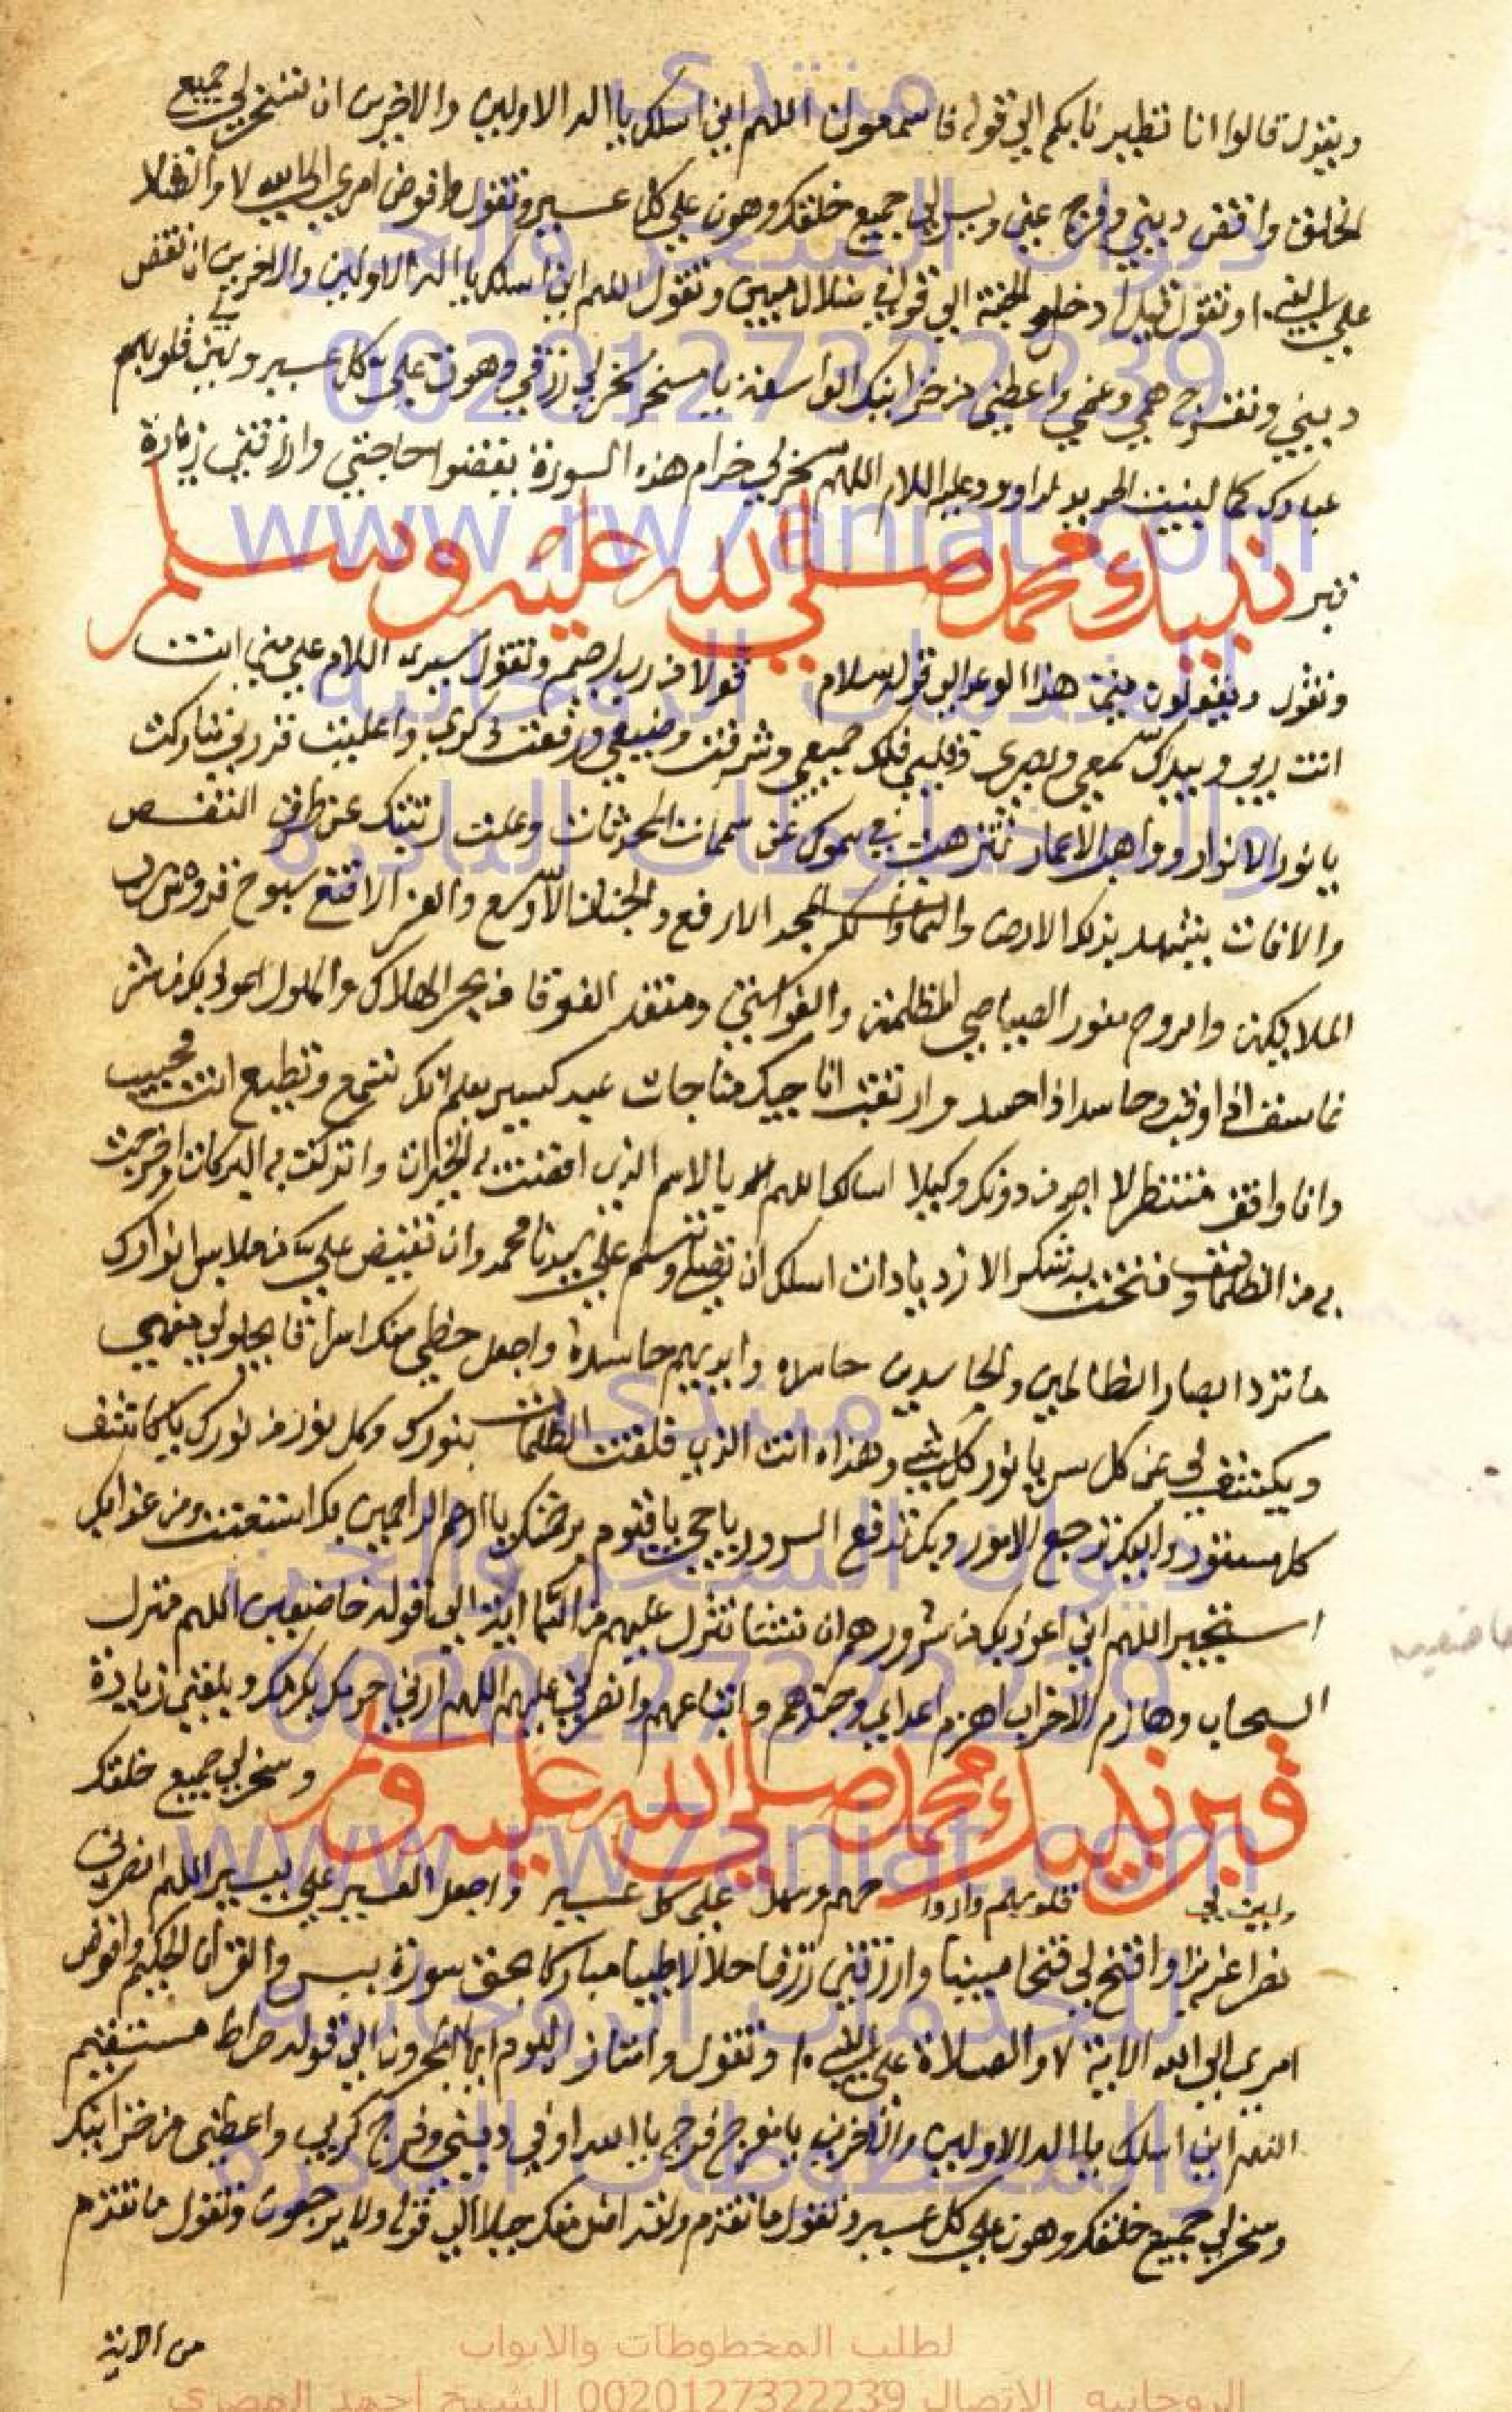 ويقول قالوا انا تطيرنا بكم الي قوله فاسمعون اللهم اني اسلك يا اله الاولين والاخرين ان تسخر لي جميع
الخلق واقض ديني وفرج عني ويسر لي جميع خلقك وهون علي كل عسير وتقول وافوض امري الي الله ٧ والصلاة
علي النبي ١٠ وتقول قيل ادخلو الجنة الي قوله في ضلال مبين وتقول اللهم اني اسلك يا اله الاولين والاخرين ان تقض
ديني وتفرج همي وغمي واعطني من خزاينك الواسعة يا مسخر سخر لي رزقي وهون علي كل عسير ولين قلوب
عبادك كما لينت الحديد لداوود عليه السلام اللهم سخر لي خدام هذه السورة يقضوا حاجتي وارزقني زيارة
قبر نبيك محمد صلي الله عليه وسلم
وتقول ويقولون متي هذا الوعد الي قوله سلام قولا من رب رحيم وتقول سيدي السلام علي مني انت
انت ربي وبيدك سمعي وبصري وقلبي فلك جميعي وشرفت وضيعي ورفعت ذكري واعليت قدري تباركت
يا نور الانوار وواهب الاعمار تنزهت في سموك عن سمات المحدثات وعلت رتبتك عن طرق النقص
والافات يشهد بذلك الارض والسماوات لك المجد الارفع والجناب الاوسع والعز الامنع سبوح قدوس رب
الملايكة والروح منور الصياصي المظلمة ومنقذ الغرقا من بحر الهلاك اعوذ بك من شر
غاسق اذا وقب وحاسد اذا حسد وارتقب اناجيك مناجات عبد كسير يعلم انك تسمع وتطيع انت مجيب
وانا واقف منتظر لا اجد من دونك وكيلا اسالك اللهم بالاسم الذي افضت به الخيرات وانزلت به البركات واخرجت
به من الظلمات وفتحت به شكر الازدياد ان اسلك ان تصلي وتسلم علي سيدنا محمد وان تفيض علي من ملابس انوارك
ما ترد ابصار الظالمين والحاسدين حاسره وايديهم خاسرة واجعل حظي منك اشراقا يجلو لي
ويكشف لي عن كل سر يا نور كل شي وهذاه انت الذي فلقت الظلمات بنورك وكل نور من نورك يا كاشف
كل مستور واليك ترجع الامور وبك تدفع الشرور يا حي يا قيوم برحمتك يا ارحم الراحمين بك استعنت
استجير اللهم اني اعوذ بك من شرورهم ان نشا ننزل عليهم من السما اية الي قوله خاضعين اللهم منزل
السحاب وهازم الاحزاب اهزم اعداي وانصرني عليهم اللهم ارني وبلغني زيارة
قبر نبيك محمد صلي الله عليه وسلم وسخر لي جميع خلقك
ولين لي قلوبهم وسهل علي كل عسير واجعل العسير علي يسير اللهم انصرني
نصرا عزيزا وافتح لي فتحا مبينا وارزقني رزقا حلالا طيبا مباركا بحق سورة يس والقران الحكيم وافوض
امري الي الله الاية ٧ والصلاة علي النبي ١٠ وتقول وامتازوا اليوم ايها المجرمون الي قوله صراط مستقيم
اللهم اني اسلك يا اله الاولين والاخرين يا مفرج فرج يا الله اوفي ديني وفرج كربي واعطني من خزاينك
وسخر لي جميع خلقك وهون علي كل عسير وتقول ما تقدم ولقد اضل منكم جبلا الي قوله ولا يرجعون وتقول ما تقدم
من الاية
خاضعين
منتدى
ديوان السحر والجن
0020127322239
www.rw7aniat.com
للخدمات الروحانية
والمخطوطات النادرة
منتدى
ديوان السحر والجن
0020127322239
www.rw7aniat.com
للخدمات الروحانية
والمخطوطات النادرة
لطلب المخطوطات والابواب
الروحانيه الاتصال 0020127322239 الشيخ احمد المصري